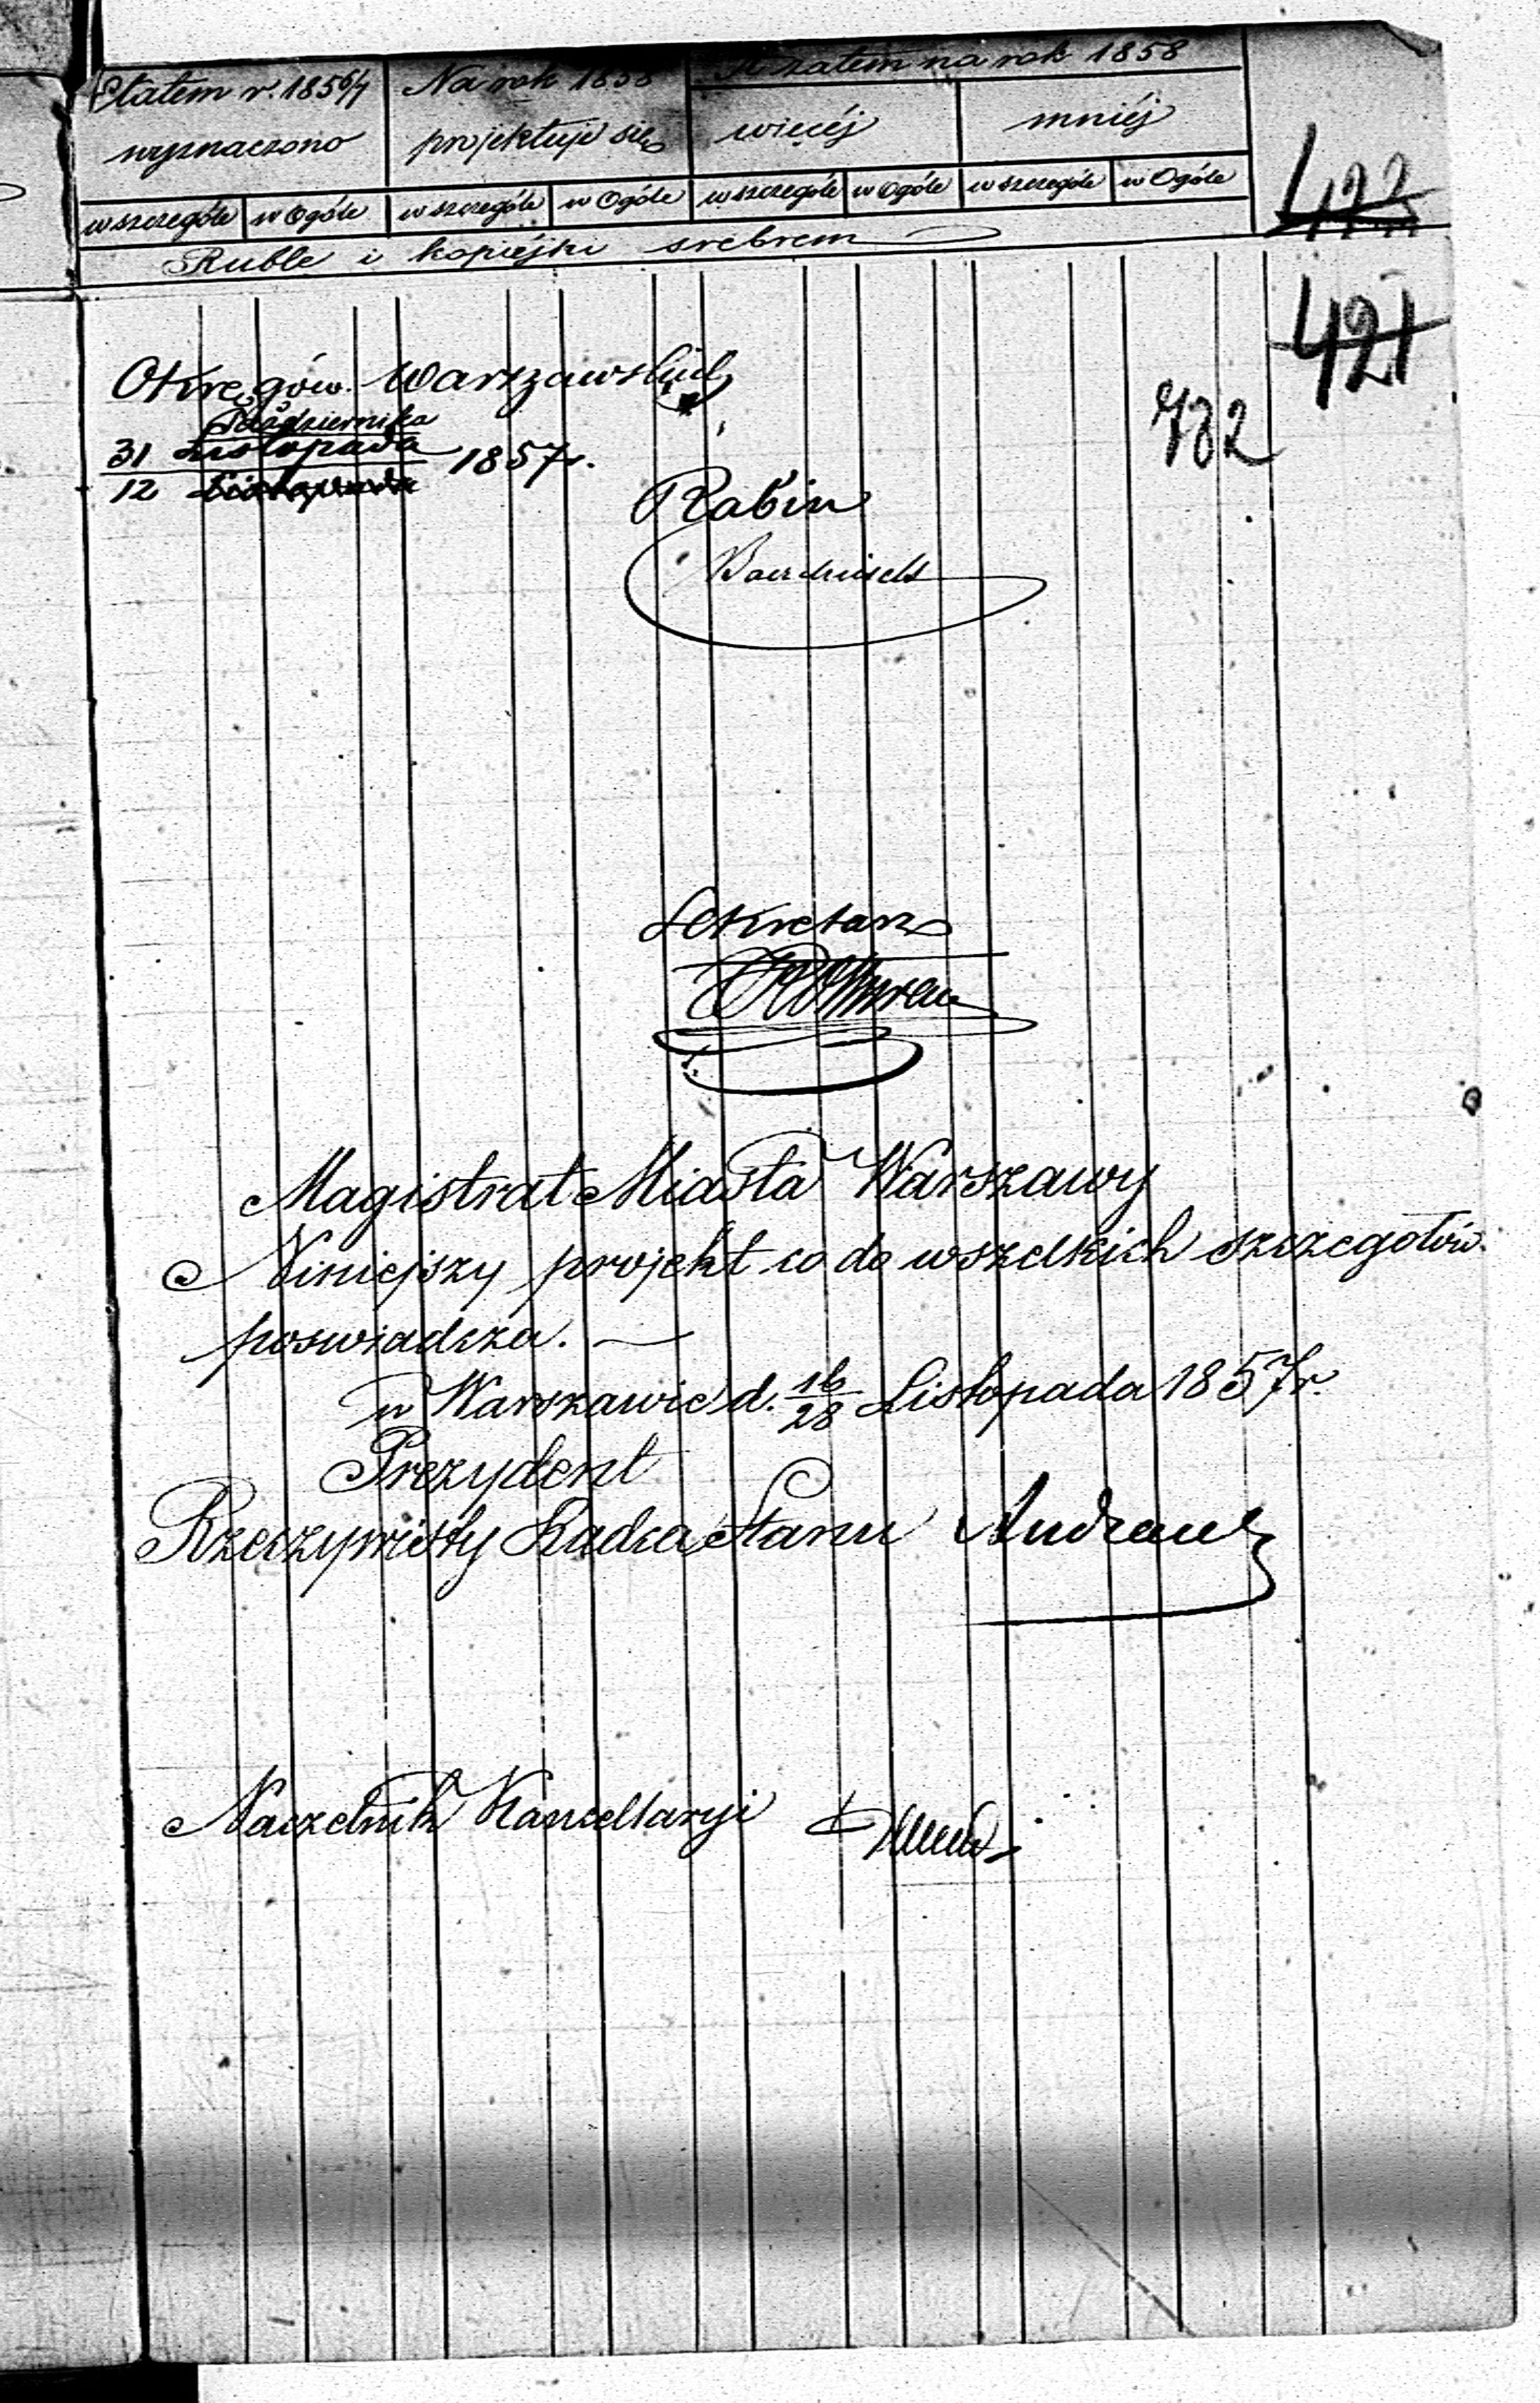 Etatem r. 1856/7
wyznaczono
Na rok 1858
projektuje się
A zatem na rok 1858
więcéj
mniéj
w szczególe w Ogóle w szczególe w Ogóle w szczególe w Ogóle w szczególe w Ogóle
Ruble i kopiéjki srebrem
422
421
732
Okręgów Warszawskich
Października
31 Listopada
12 Listopada
1857 r.
Rabin
Sekretarz
Magistrat Miasta Warszawy
Niniejszy projekt co do wszelkich szczegołów
poswiadcza. —
w Warszawie d. 16/28 Listopada 1857 r.
Prezydent
Rzeczywisty Radca Stanu Andrault
Naczelnik Kancellaryi